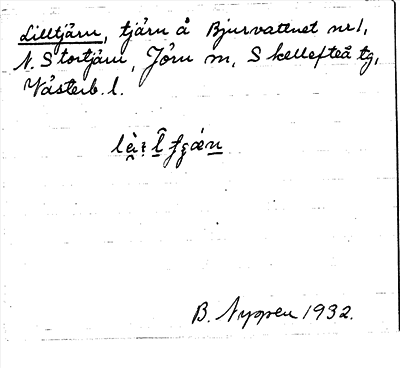 Lilltjärn, tjärn å Bjurvattnet nr 1,
N. Stortjärn, Jörn sn, Skellefteå tg,
Västerb. l.
B. Nygren 1932.